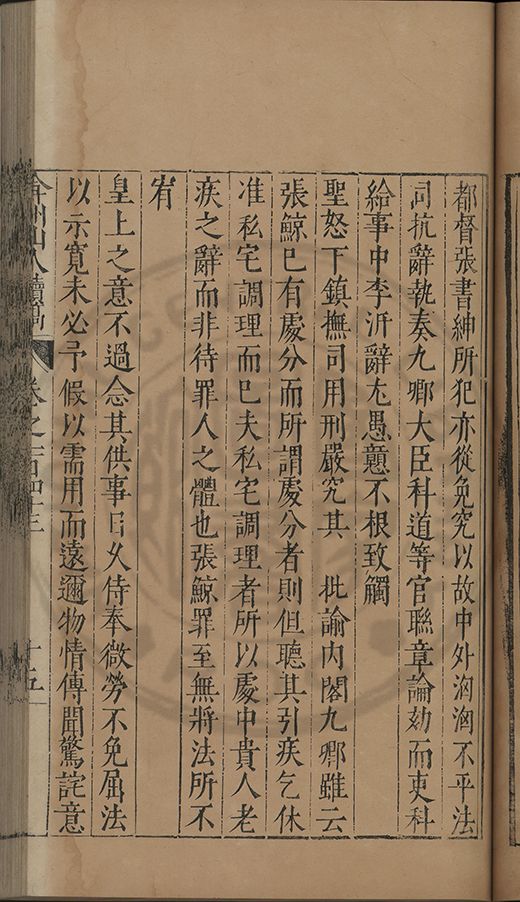 都督張書紳所犯亦從免究以故中外洶洶不平法
司抗辭執奏九卿大臣科道等官聯章論劾而吏科
給事中李沂辭尤愚戇不根致觸
聖怒下鎮撫司用刑嚴究其 批諭內閣九卿雖云
張鯨已有處分而所謂處分者則但聽其引疾乞休
准私宅調理而已夫私宅調理者所以處中貴人老
疾之辭而非待罪人之體也張鯨罪至無將法所不
宥
皇上之意不過念其供事日久侍奉微勞不免屈法
以示寬未必予假以需用而遠邇物情傳聞驚詫意
弇州山人續稿 卷之一百四十三 十五